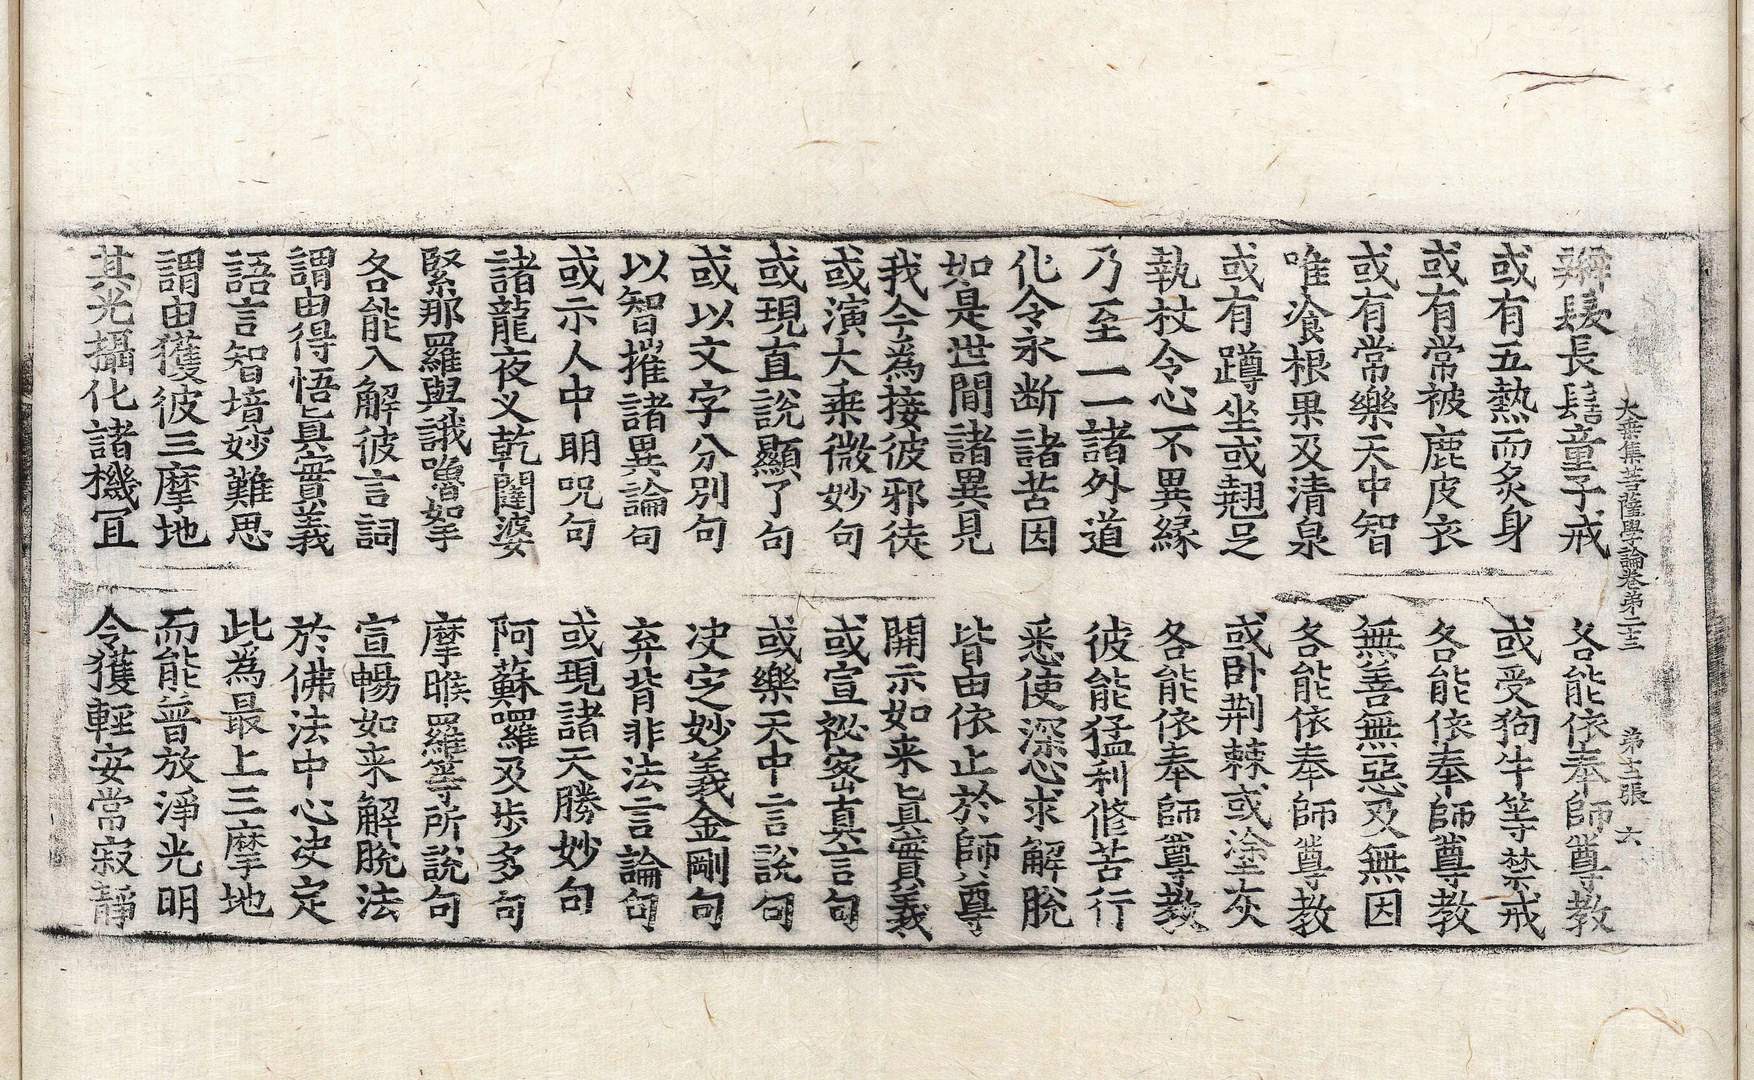 大乘集菩薩學論卷苐二十三　苐十二張　六
辮髮長髭童子戒　各能依奉師尊教
或有五熱而炙身　或受狗牛等禁戒
或有常被鹿皮衣　各能依奉師尊教
或有常樂天中智　無善無惡及無因
唯飡根果及清泉　各能依奉師尊教
或有蹲坐或翹足　或卧荆棘或塗灰
執杖令心不異緣　各能依奉師尊教
乃至一一諸外道　彼能猛利修苦行
化令永断諸苦因　悉使深心求解脫
如是世間諸異見　皆由依止於師尊
我今為接彼邪徒　開示如来真實義
或演大乘微妙句　或宣祕密真言句
或現直說顯了句　或樂天中言說句
或以文字分別句　决定妙義金剛句
以智摧諸異論句　弃背非法言論句
或示人中明呪句　或現諸天勝妙句
諸龍夜叉乾闥婆　阿蘇囉及步多句
緊那羅與誐嚕拏　摩睺羅等所說句
各能入解彼言詞　宣暢如来解脫法
謂由得悟真實義　於佛法中心决定
語言智境妙難思　此為最上三摩地
謂由獲彼三摩地　而能普放淨光明
其光攝化諸機宜　令獲輕安常寂靜